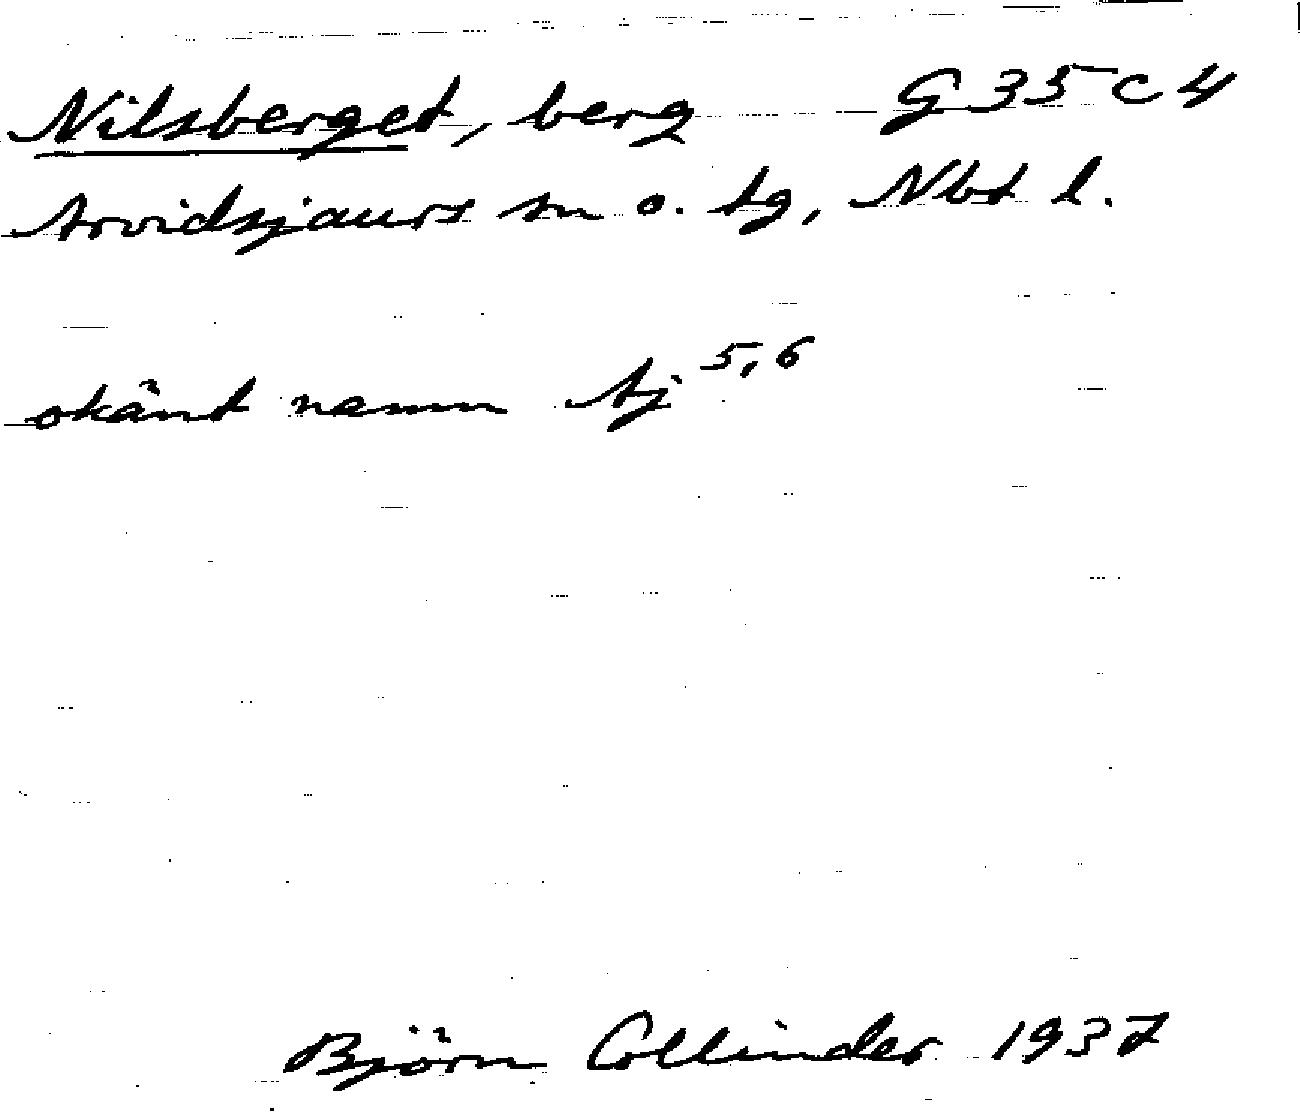 Nilsberget, berg G 35 c 4
Arvidsjaurs sn o. tg, Nbt l.
okänt namn Aj 5,6
Björn Collinder 1937